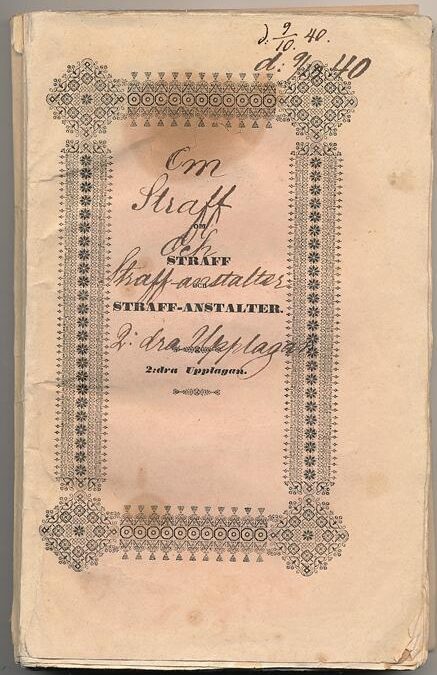 d. 9/10 40.
d: 9/10 40
Om
Straff
OM
och
STRAFF
Straff-anstalter
OCH
STRAFF-ANSTALTER.
2: dra Upplagan
2:dra Upplagan.